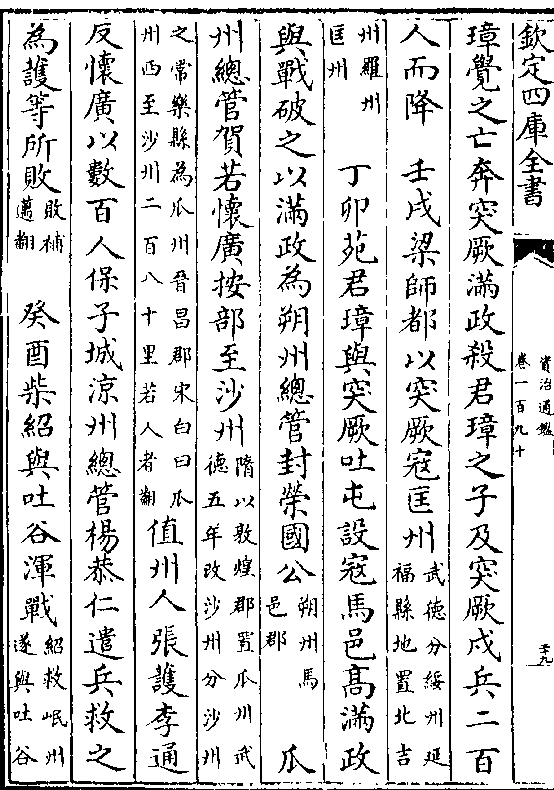 欽定四庫全書
資治通鑑
卷一百九十
璋覺之亡奔突厥滿政殺君璋之子及突厥戍兵二百
人而降 壬戌梁師都以突厥寇匡州武德分綏州延福縣地置北吉
州羅州匡州 丁卯苑君璋與突厥吐屯設寇馬邑高滿政
與戰破之以滿政為朔州總管封榮國公朔州馬邑郡 瓜
州總管賀若懷廣按部至沙州隋以敦煌郡置瓜州武德五年改沙州分沙州
之常樂縣為瓜州晉昌郡宋白曰瓜州西至沙州二百八十里若人者翻值州人張護李通
反懷廣以數百人保子城涼州總管楊恭仁遣兵救之
為護等所敗敗補邁翻 癸酉柴紹與吐谷渾戰紹救岷州遂與吐谷